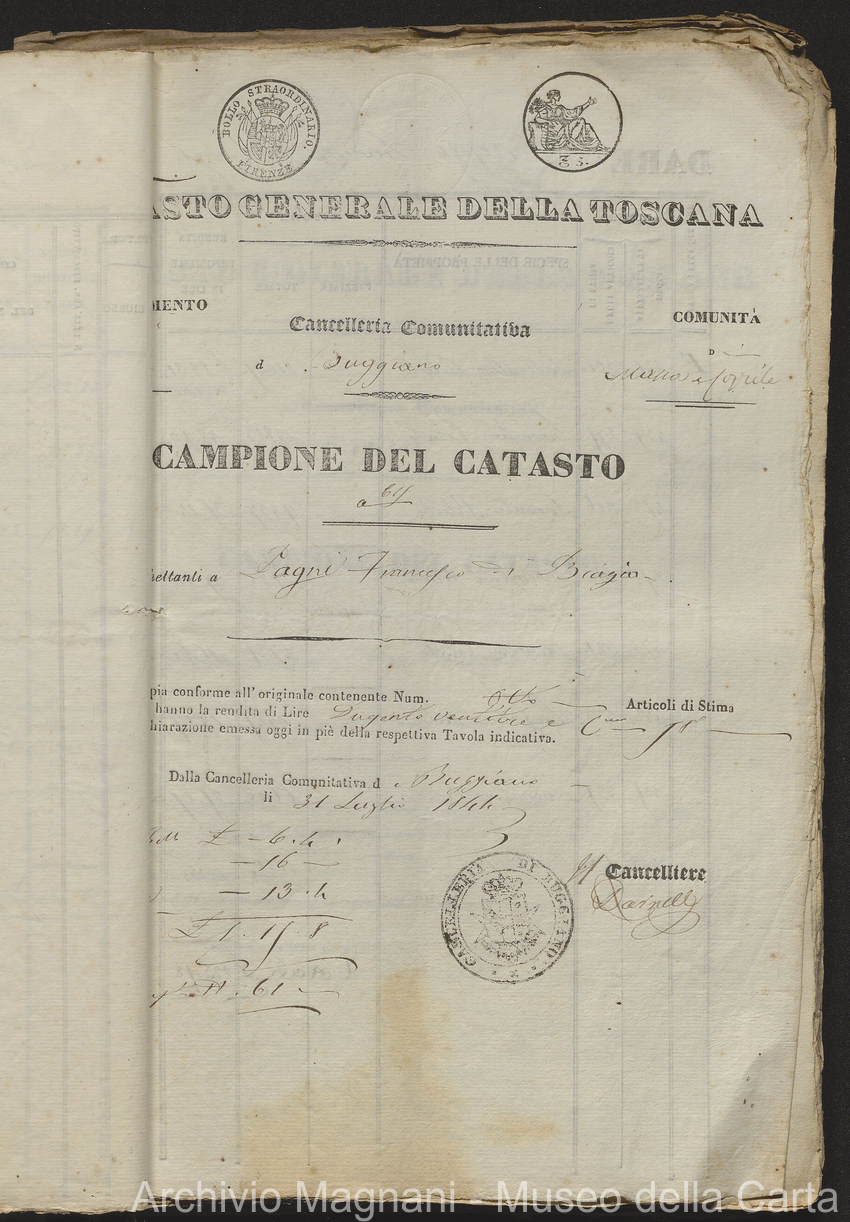 BOLLO STRAORDINARIO.
FIRENZE
ASTO GENERALE DELLA TOSCANA
MENTO
Cancelleria Comunitativa
d Buggiano
COMUNITÀ
D
Massa e Cozzile
CAMPIONE DEL CATASTO
a
ettanti a Pagni Francesco di Biagio
pia conforme all' originale contenente Num. Otto Articoli di Stima
hanno la rendita di Lire Dugento ventitre e C
hiarazione emessa oggi in piè della respettiva Tavola indicativa.
Dalla Cancelleria Comunitativa d Buggiano
li 31 Luglio 1844
£ - 6. 4.
- 16 -
- 13. 4
£ 1. 15. 8
61 -
Il Cancelliere
CANCELLERIA DI BUGGIANO
Archivio Magnani - Museo della Carta